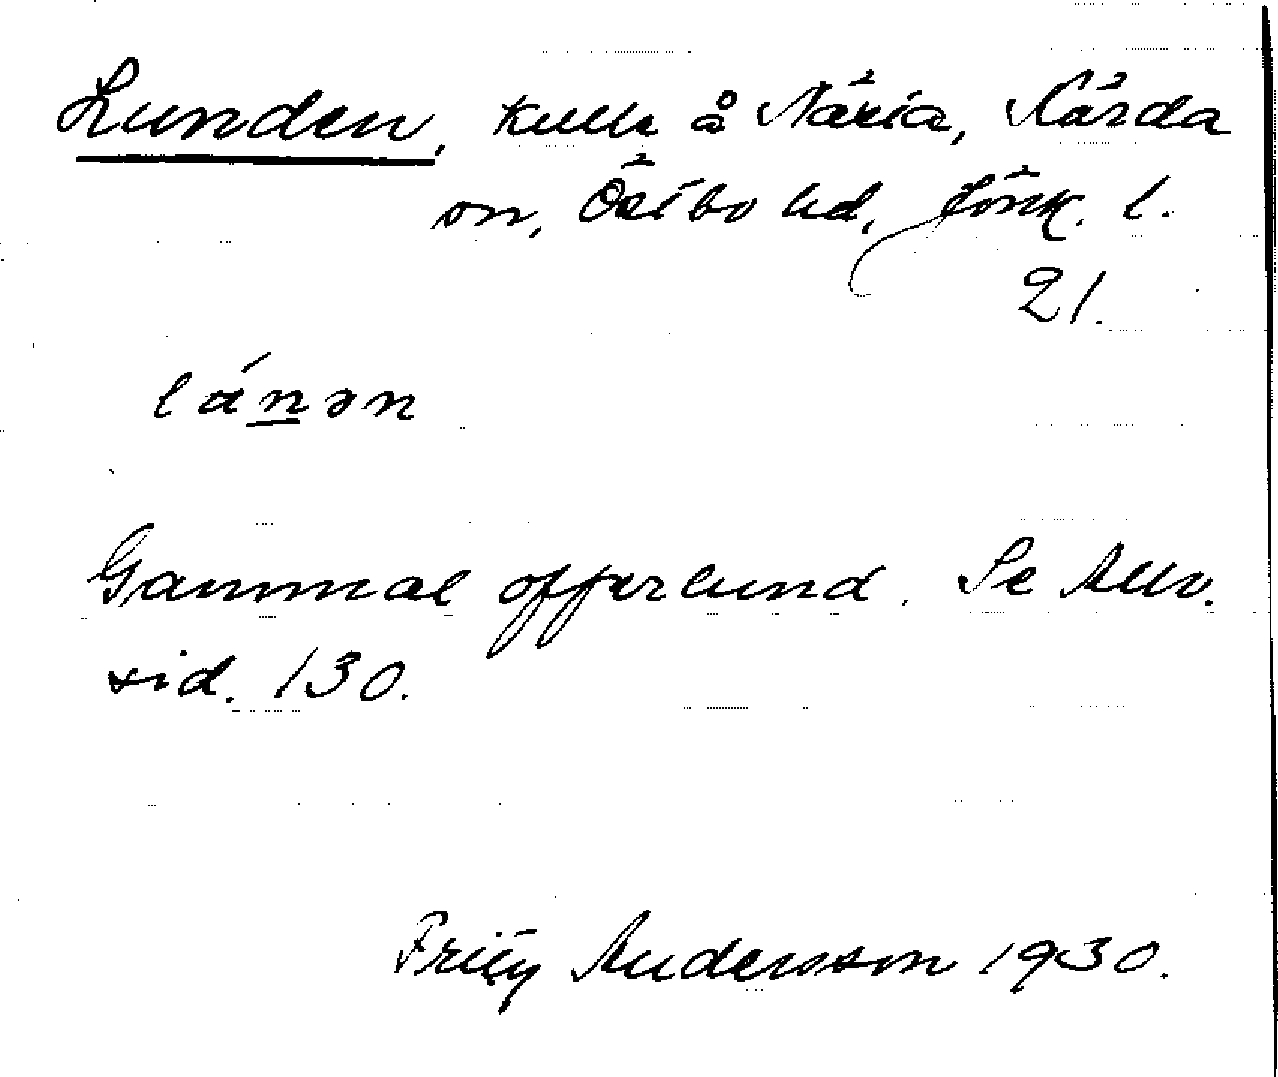 Lunden, kulle å Näsia, Kärda
sn, Östbo hd, Jönk. l.
21.
lánən
Gammal offerlund. Se Allv.
sid. 130.
Fritz Andersson 1930.